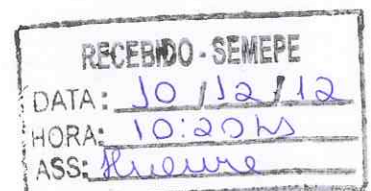 RECEBIDO - SEMEPE
DATA: 10 / 12 / 12
HORA: 10:20hs
ASS: